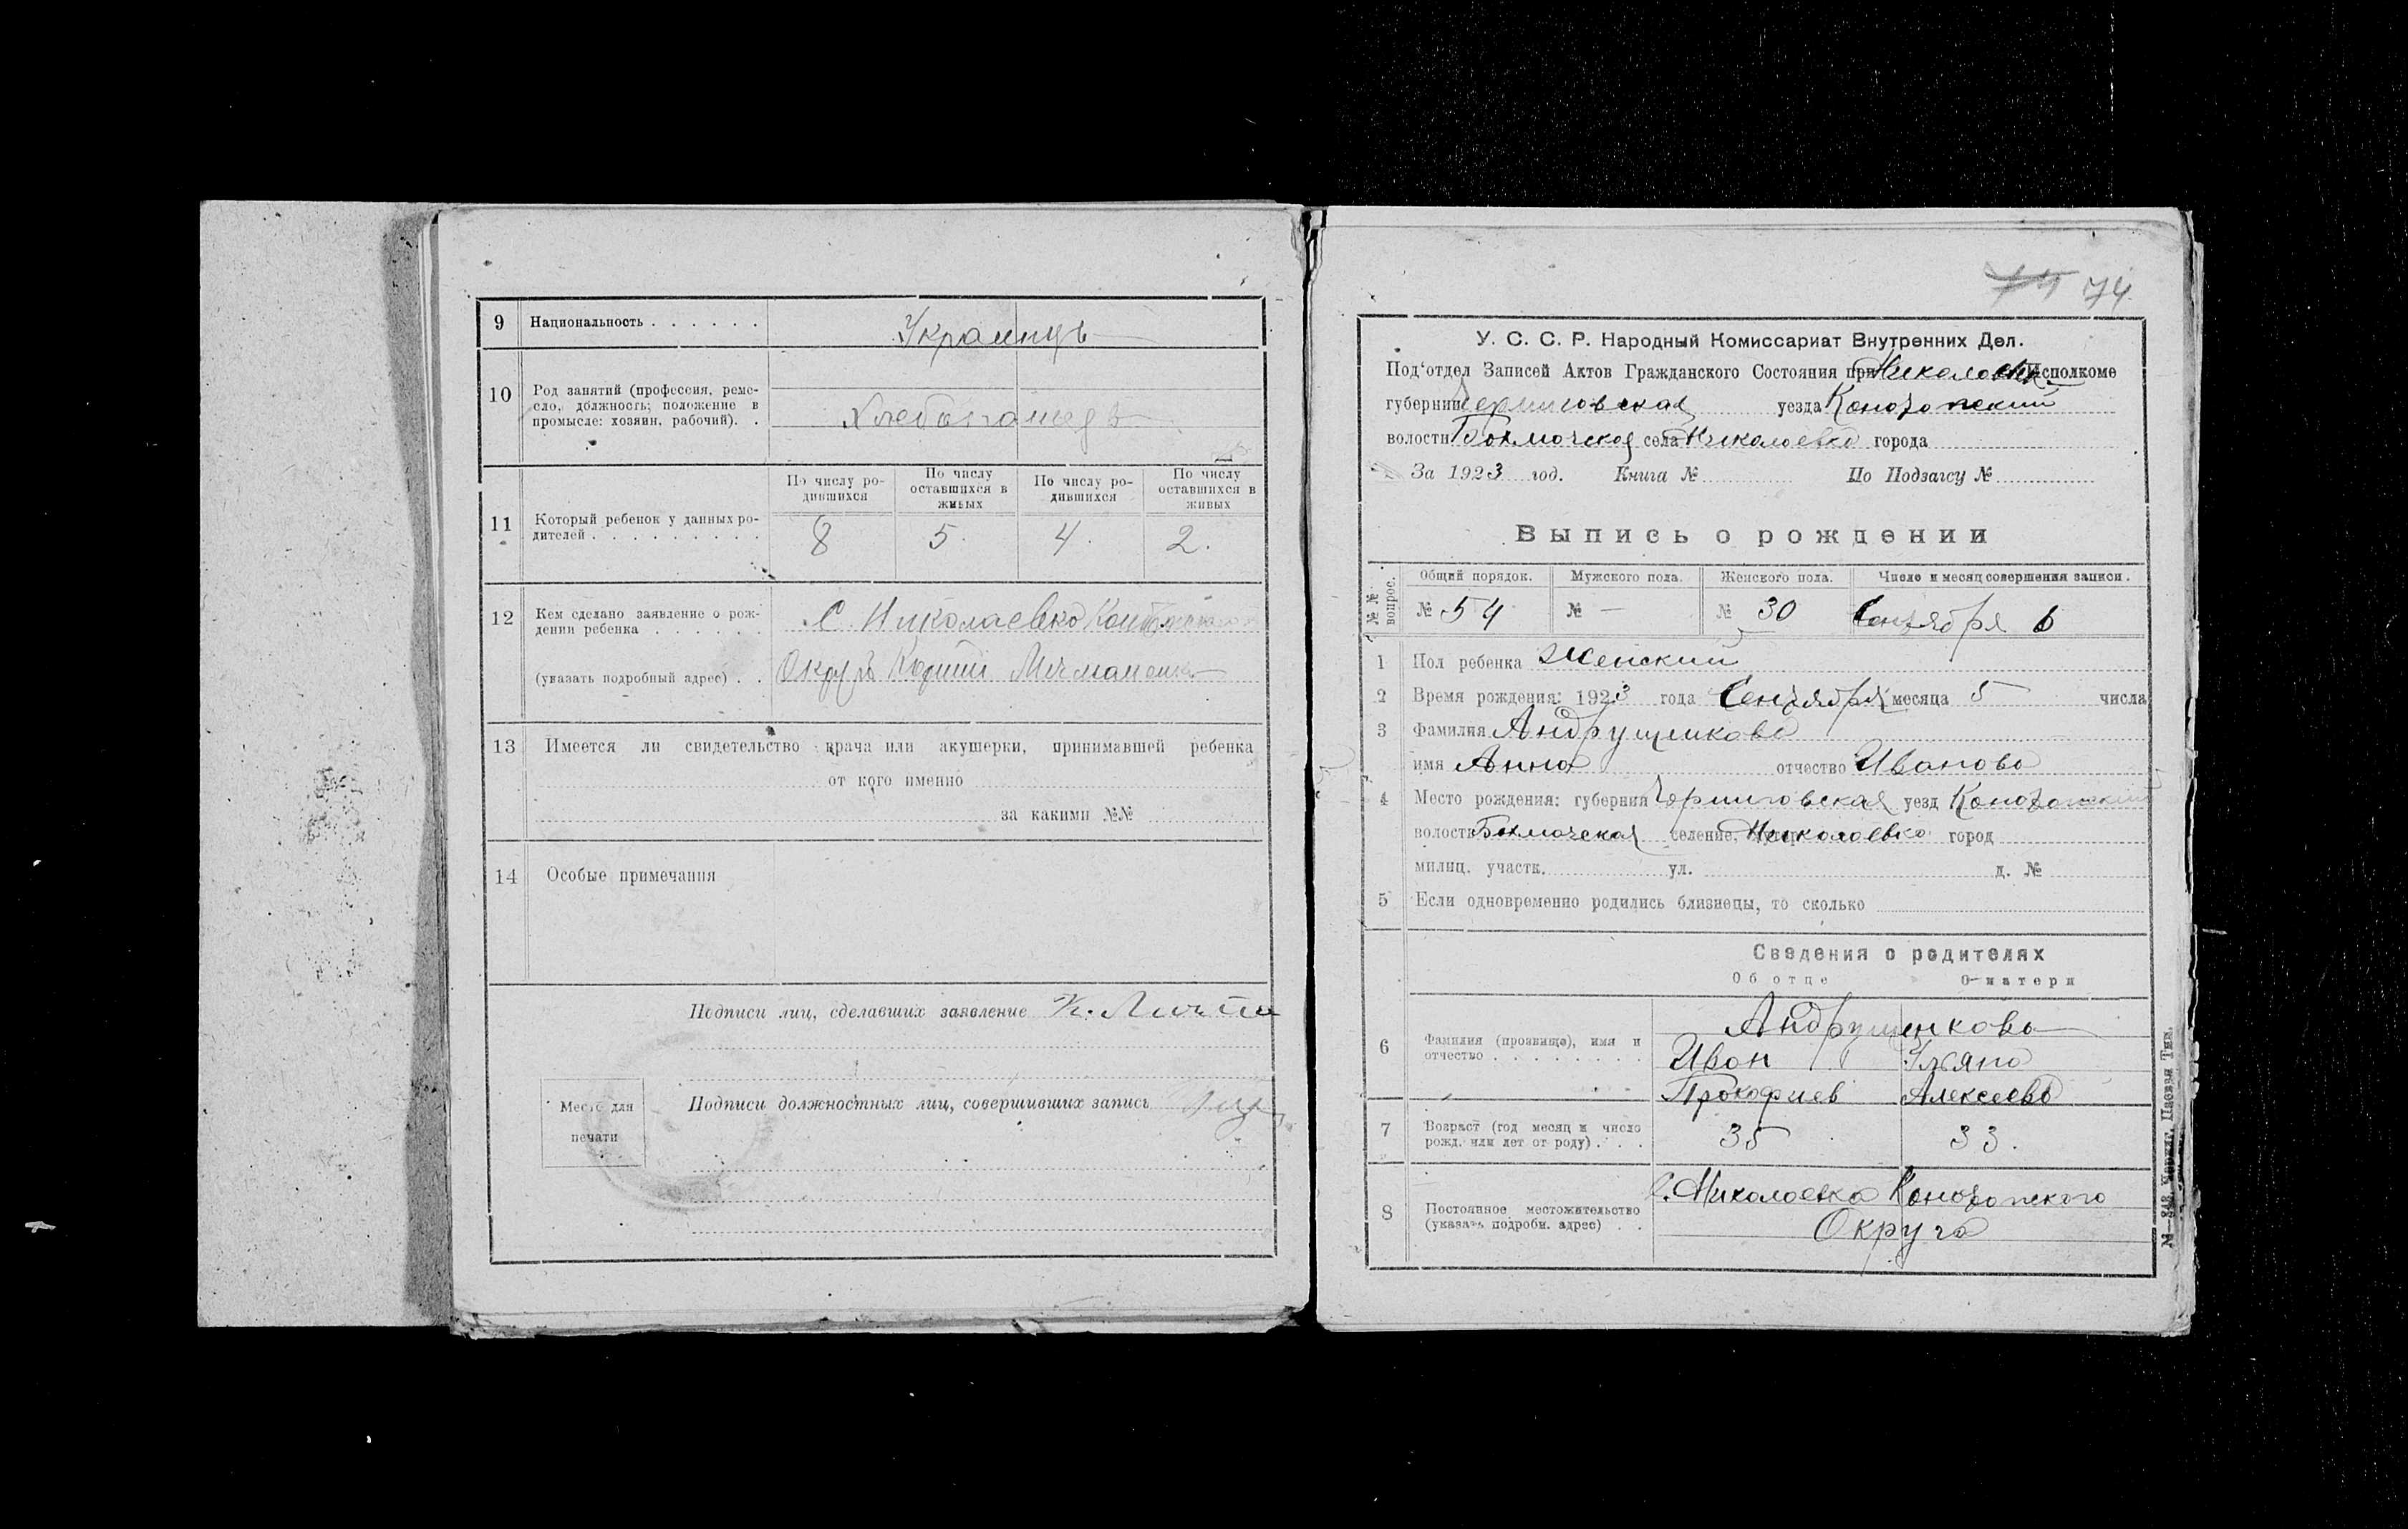 9 Национальность . . . . . .
Украинцъ
10 Род занятий (профессия, реме-
сло, должность; положение в
промысле: хозяин, рабочий). .
Хлебопашец
11 Который ребенок у данных ро-
дителей . . . . . . . . .
По числу ро-
дившихся
По числу
оставшихся в
живых
По числу ро-
дившихся
По числу
оставшихся в
живых
8 5. 4. 2.
12 Кем сделано заявление о рож-
дении ребенка . . . . . .
(указать подробный адрес) . .
С. Николаевка
Округа
13 Имеется ли свидетельство врача или акушерки, принимавшей ребенка
от кого именно
за какими №№
14 Особые примечания
Подписи лиц, сделавших заявление
Место для
печати
Подписи должностных лиц, совершивших запись
74.
У. С. С. Р. Народный Комиссариат Внутренних Дел.
Под'отдел Записей Актов Гражданского Состояния при Николаевск Исполкоме
губернии Черниговская уезда Конотопский
волости Бахмачская села Николаевка города
За 1923 год. Книга № По Подзагсу №
Выпись о рождении
№№ вопрос.
Общий порядок. Мужского пола. Женского пола. Число и месяц совершения записи.
№ 54 № — № 30 Сентября 6
1 Пол ребенка Женский
2 Время рождения: 1923 года Сентября месяца 5 числа
3 Фамилия Андрущенкова
имя Анна отчество Иванова
4 Место рождения: губерния Черниговская уезд Конотопский
волость Бахмачская селение, хутор Николаевка город
милиц. участк. ул. д. №
5 Если одновременно родились близнецы, то сколько
Сведения о родителях
Об отце О матери
6 Фамилия (прозвище), имя и
отчество . . . . . . . . .
Андрущенковы
Иван Ульяна
Прокофиев Алексеева
7 Возраст (год месяц и число
рожд. или лет от роду) . . .
35 33.
8 Постоянное местожительство
(указать подробн. адрес) . .
С. Николаевка Конотопского
Округа